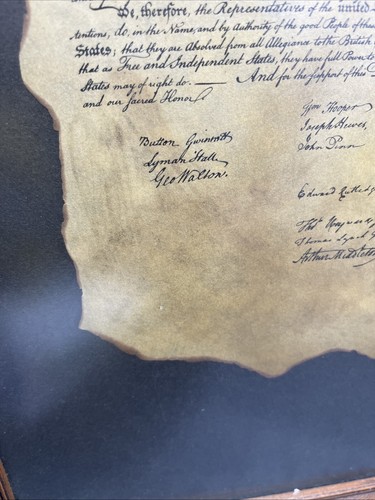 We, therefore, the Representatives of the united
tentions, do, in the Name, and by Authority of the good People of these
States; that they are Absolved from all Allegiance to the British
that as Free and Independent States, they have full Power to
States may of right do. — And for the support of this
and our sacred Honor
Button Gwinnett
Lyman Hall
Geo Walton.
Wm Hooper
Joseph Hewes,
John Penn
Edward Rutledge
Thos Heyward
Thomas Lynch
Arthur Middleton